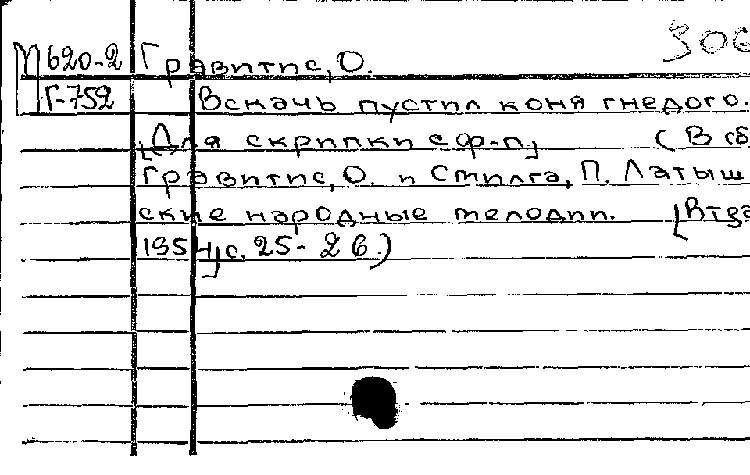 306
М620-2 Гравитис, О.
Г-752 Вскачь пустил коня гнедого.
[Для скрипки с ф-п] (В сб
Гравитис, О. и Стилга, П. Латыш
ские народные мелодии.
195 с. 25-26.)